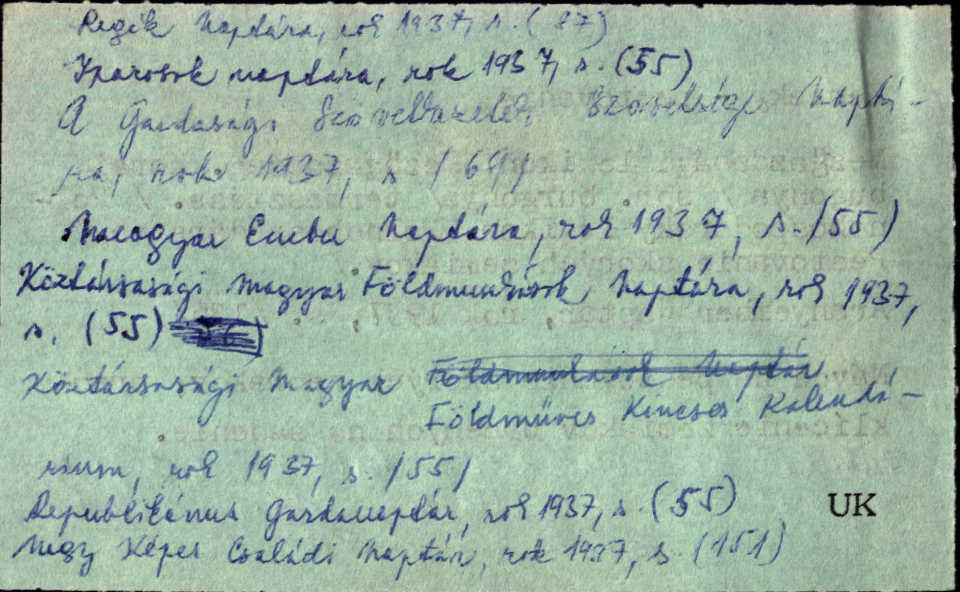 Regék Naptára, rok 1937, s. (87)
Iparosok naptára, rok 1937, s. (55)
A Gazdasági Szövetkezetek Szövetsége Naptá-
ra, rok 1937, s. (69)
Magyar Ember Naptára, rok 1937, s. (55)
Köztársasági Magyar Földmunkások Naptára, rok 1937,
s. (55)
Köztársasági Magyar Földmunkások Naptár
Földmüves Kincses Kalendá-
rium, rok 1937, s. (55)
Republikánus Gazdanaptár, rok 1937, s. (55)
UK
Nagy Képes Családi Naptár, rok 1937, s. (151)